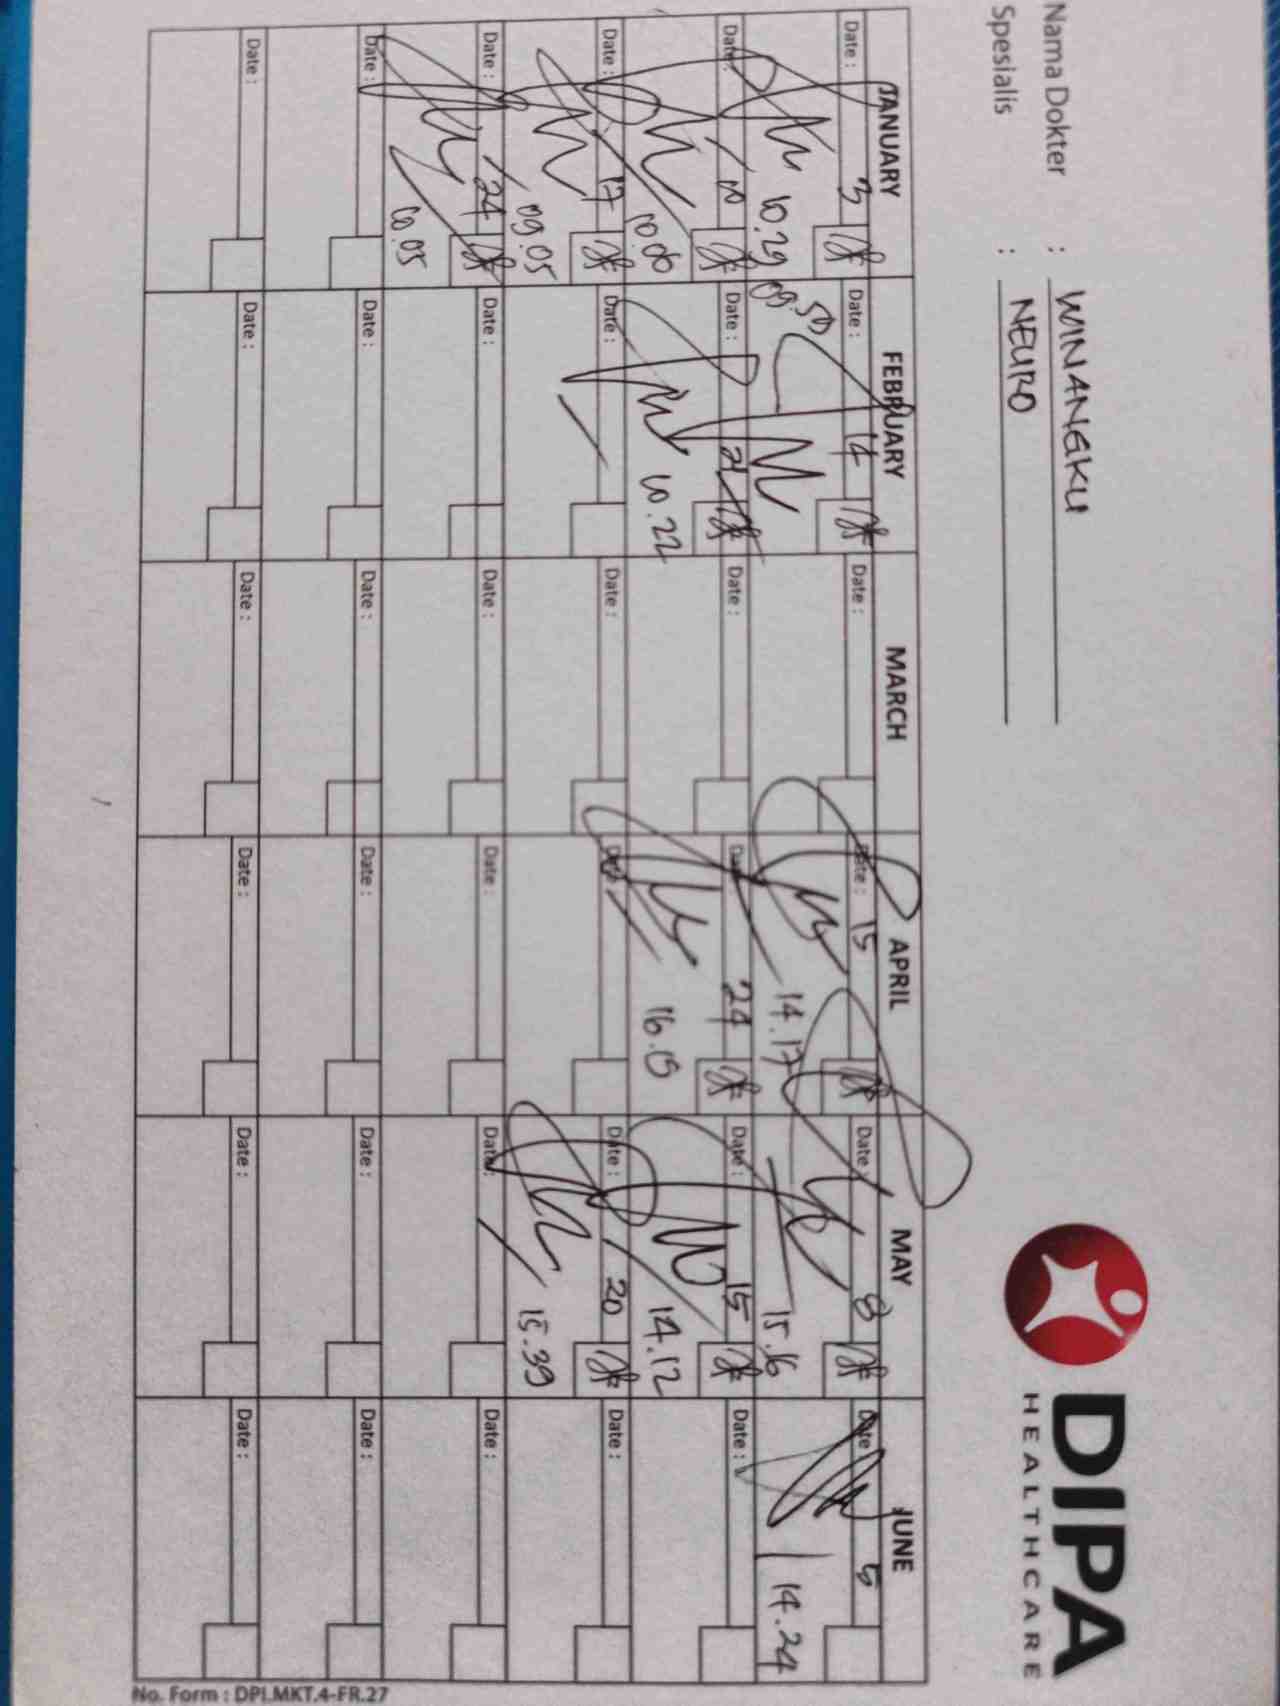 Nama Dokter : WINANGKU
Spesialis : NEURO
DIPA
HEALTHCARE
JANUARY FEBRUARY MARCH APRIL MAY JUNE
Date : 3 Date : 14 Date : Date : 15 Date : 8 Date : 5
10.29 09.50 14.17 15.16 14.24
Date : 10 Date : 21 Date : Date : 24 Date : 15 Date :
10.00 10.22 16.15 14.12
Date : 17 Date : Date : Date : Date : 20 Date :
09.05 15.39
Date : 24 Date : Date : Date : Date : Date :
Date : Date : Date : Date : Date : Date :
Date : Date : Date : Date : Date : Date :
No. Form : DPI.MKT.4-FR.27